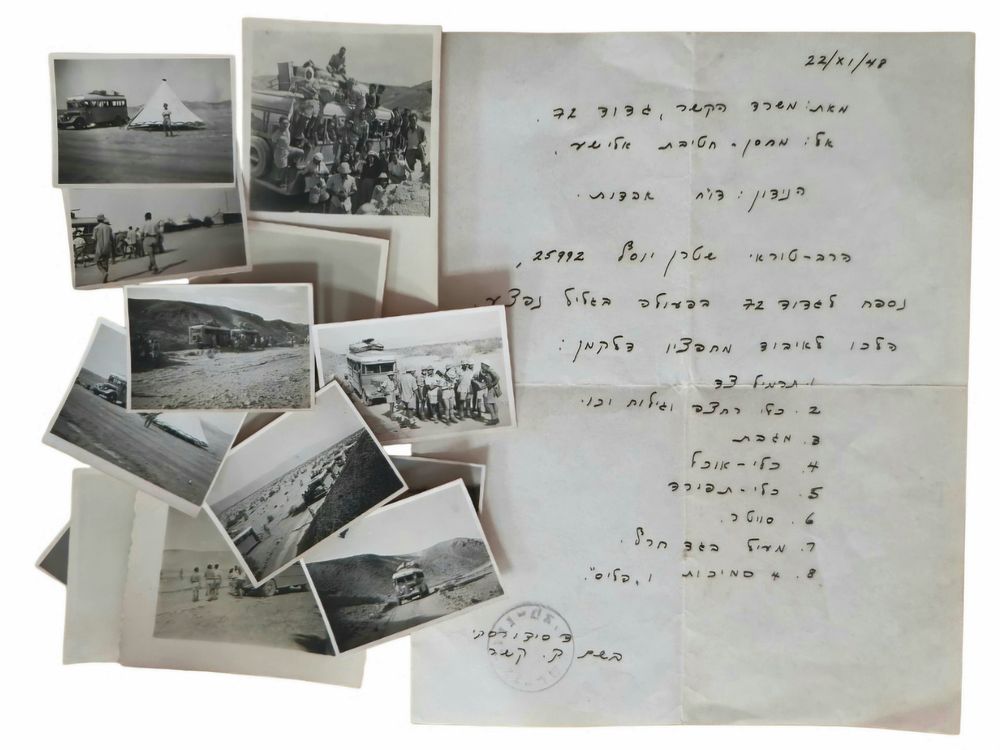 22/XI/48
מאת: משרד הקשר, גדוד 72.
אל: מחסן - חטיבת אלישע.
הנידון: דו"ח אבדות.
הרב-טוראי שטרן יוסף 25992,
נספח לגדוד 72 בפעולה בגליל נפצע.
הלכו לאיבוד מחפציו דלקמן:
1. תרמיל צד
2. כלי רחצה וגילוח וכו'
3. מגבת
4. כלי-אוכל
5. כלי-תפירה
6. סוודר.
7. מעיל בגד חרף.
8. 4 שמיכות
בשם ק. קשר